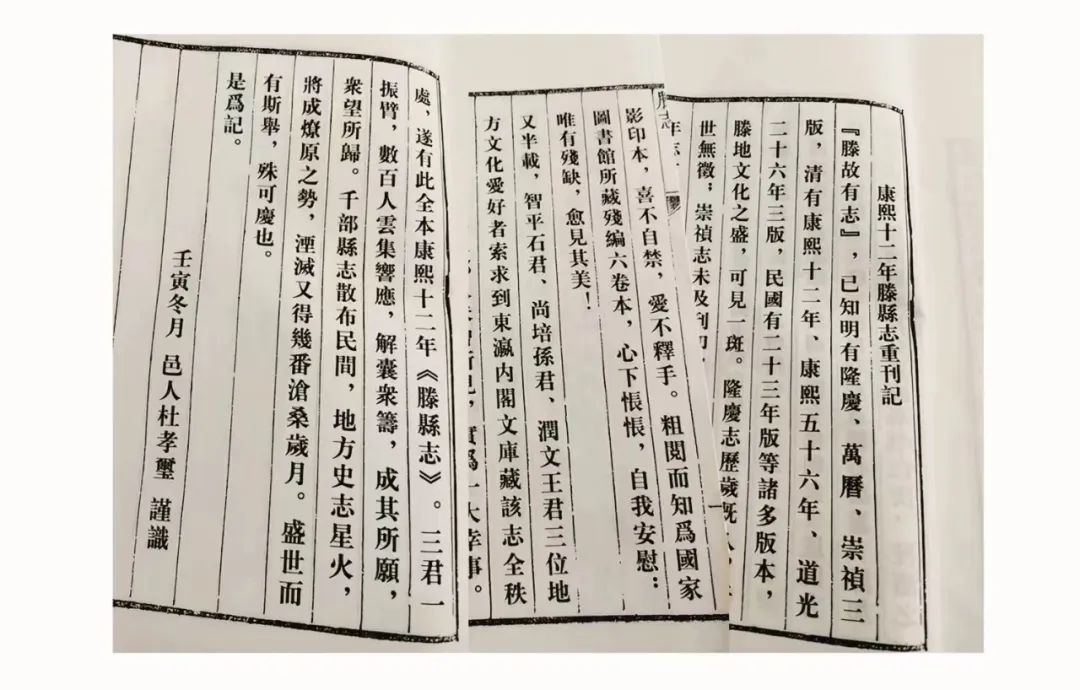 康熙十二年滕縣志重刊記
『滕故有志』，已知明有隆慶、萬曆、崇禎三
版，清有康熙十二年、康熙五十六年、道光
二十六年三版，民國有二十三年版等諸多版本，
滕地文化之盛，可見一斑。隆慶志歷歲既久，
世無徵；崇禎志未及刊刻，
影印本，喜不自禁，愛不釋手。粗閱而知爲國家
圖書館所藏殘編六卷本，心下悵悵，自我安慰：
唯有殘缺，愈見其美！
又半載，智平石君、尚培孫君、潤文王君三位地
方文化愛好者索求到東瀛内閣文庫藏該志全秩
實爲一大幸事。
處，遂有此全本康熙十二年《滕縣志》。三君一
振臂，數百人雲集響應，解囊衆籌，成其所願，
衆望所歸。千部縣志散布民間，地方史志星火，
將成燎原之勢，湮滅又得幾番滄桑歲月。盛世而
有斯舉，殊可慶也。
是爲記。
壬寅冬月 邑人杜孝璽 謹識